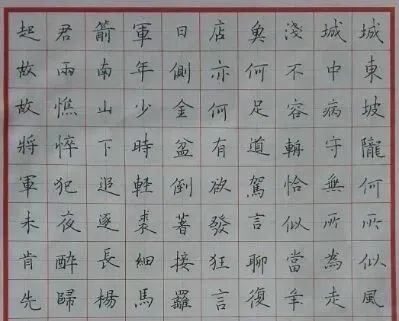 城東坡隴何所似風
城中病守無所為走
淺不容輈恰似當年
魚何足道駕言聊復
店亦何有欲發狂言
日側金盆倒著接羅
軍年少時輕裘細馬
箭南山下追逐長楊
君兩憔悴犯夜醉歸
起故故將軍未肯先